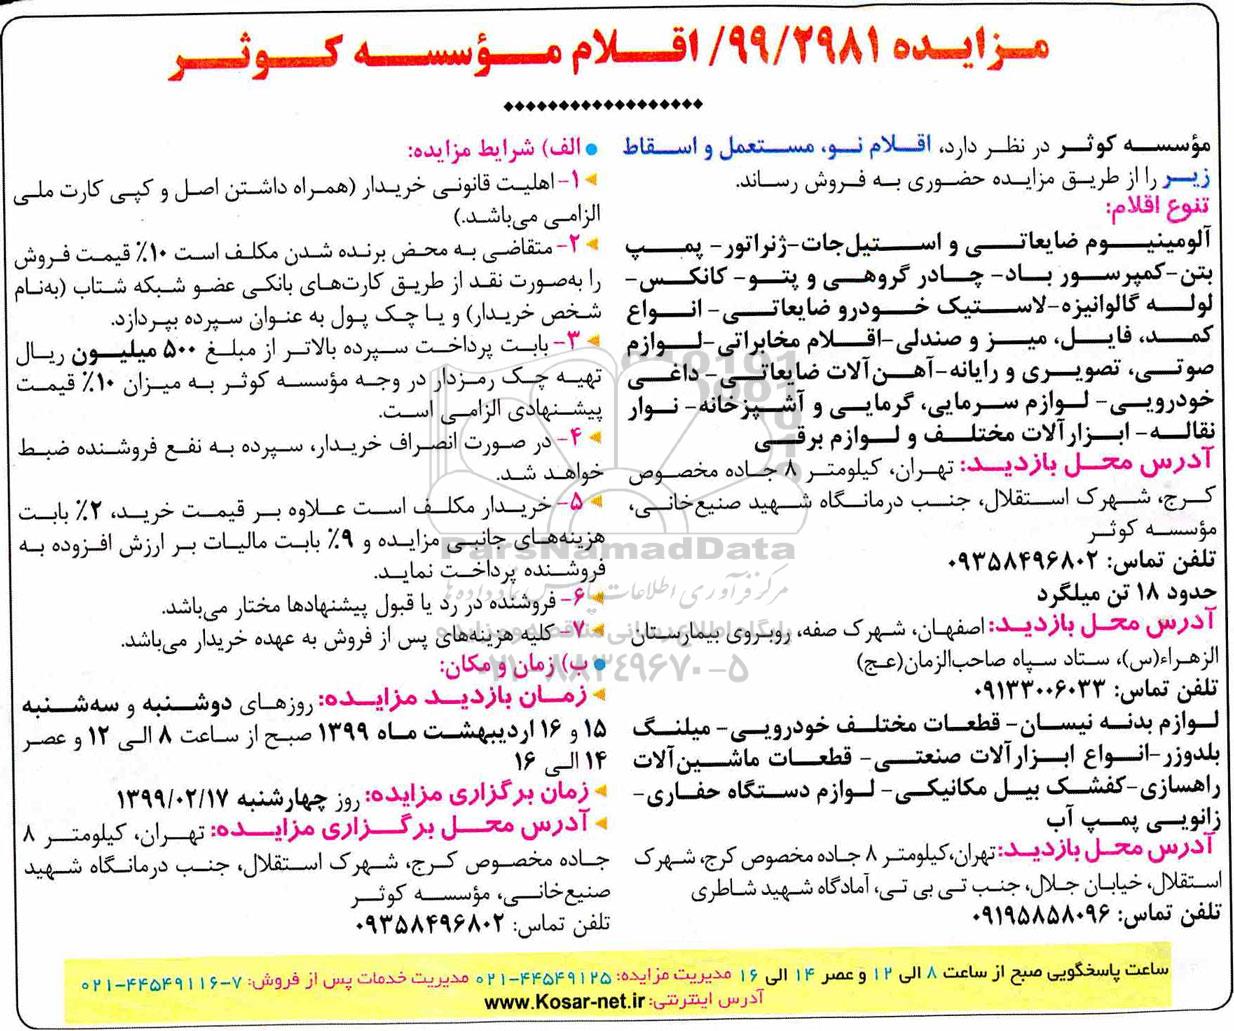 مزایده ۹۹/۲۹۸۱/ اقلام مؤسسه کوثر
مؤسسه کوثر در نظر دارد، اقلام نو، مستعمل و اسقاط
زیر را از طریق مزایده حضوری به فروش رساند.
تنوع اقلام:
آلومینیوم ضایعاتی و استیل‌جات-ژنراتور- پمپ
بتن-کمپرسور باد- چادر گروهی و پتو- کانکس-
لوله گالوانیزه-لاستیک خودرو ضایعاتی- انواع
کمد، فایل، میز و صندلی-اقلام مخابراتی-لوازم
صوتی، تصویری و رایانه-آهن‌آلات ضایعاتی- داغی
خودرویی- لوازم سرمایی، گرمایی و آشپزخانه- نوار
نقاله- ابزارآلات مختلف و لوازم برقی
آدرس محل بازدید: تهران، کیلومتر ۸ جاده مخصوص
کرج، شهرک استقلال، جنب درمانگاه شهید صنیع‌خانی،
مؤسسه کوثر
تلفن تماس: ۰۹۳۵۸۴۹۶۸۰۲
حدود ۱۸ تن میلگرد
آدرس محل بازدید: اصفهان، شهرک صفه، روبروی بیمارستان
الزهراء(س)، ستاد سپاه صاحب‌الزمان(عج)
تلفن تماس: ۰۹۱۳۳۰۰۶۰۳۳
لوازم بدنه نیسان- قطعات مختلف خودرویی- میلنگ
بلدوزر-انواع ابزارآلات صنعتی- قطعات ماشین‌آلات
راهسازی-کفشک بیل مکانیکی- لوازم دستگاه حفاری-
زانویی پمپ آب
آدرس محل بازدید: تهران،کیلومتر ۸ جاده مخصوص کرج، شهرک
استقلال، خیابان جلال، جنب تی بی تی، آمادگاه شهید شاطری
تلفن تماس: ۰۹۱۹۵۸۵۸۰۹۶
الف) شرایط مزایده:
۱-اهلیت قانونی خریدار (همراه داشتن اصل و کپی کارت ملی
الزامی می‌باشد.)
۲- متقاضی به محض برنده شدن مکلف است ۱۰٪ قیمت فروش
را به‌صورت نقد از طریق کارت‌های بانکی عضو شبکه شتاب (به‌نام
شخص خریدار) و یا چک پول به عنوان سپرده بپردازد.
۳- بابت پرداخت سپرده بالاتر از مبلغ ۵۰۰ میلیون ریال
تهیه چک رمزدار در وجه مؤسسه کوثر به میزان ۱۰٪ قیمت
پیشنهادی الزامی است.
۴- در صورت انصراف خریدار، سپرده به نفع فروشنده ضبط
خواهد شد.
۵- خریدار مکلف است علاوه بر قیمت خرید، ۲٪ بابت
هزینه‌های جانبی مزایده و ۹٪ بابت مالیات بر ارزش افزوده به
فروشنده پرداخت نماید.
۶- فروشنده در رد یا قبول پیشنهادها مختار می‌باشد.
۷- کلیه هزینه‌های پس از فروش به عهده خریدار می‌باشد.
ب) زمان و مکان:
زمان بازدید مزایده: روزهای دوشنبه و سه‌شنبه
۱۵ و ۱۶ اردیبهشت ماه ۱۳۹۹ صبح از ساعت ۸ الی ۱۲ و عصر
۱۴ الی ۱۶
زمان برگزاری مزایده: روز چهارشنبه ۱۳۹۹/۰۲/۱۷
آدرس محل برگزاری مزایده: تهران، کیلومتر ۸
جاده مخصوص کرج، شهرک استقلال، جنب درمانگاه شهید
صنیع‌خانی، مؤسسه کوثر
تلفن تماس: ۰۹۳۵۸۴۹۶۸۰۲
ساعت پاسخگویی صبح از ساعت ۸ الی ۱۲ و عصر ۱۴ الی ۱۶ مدیریت مزایده: ۰۲۱-۴۴۵۴۹۱۲۵ مدیریت خدمات پس از فروش: ۰۲۱-۴۴۵۴۹۱۱۶-۷
آدرس اینترنتی: www.Kosar-net.ir
ParsNamadData
مرکز فرآوری اطلاعات پارس نماد داده‌ها
۰۲۱-۸۸۳۴۹۶۷۰-۵